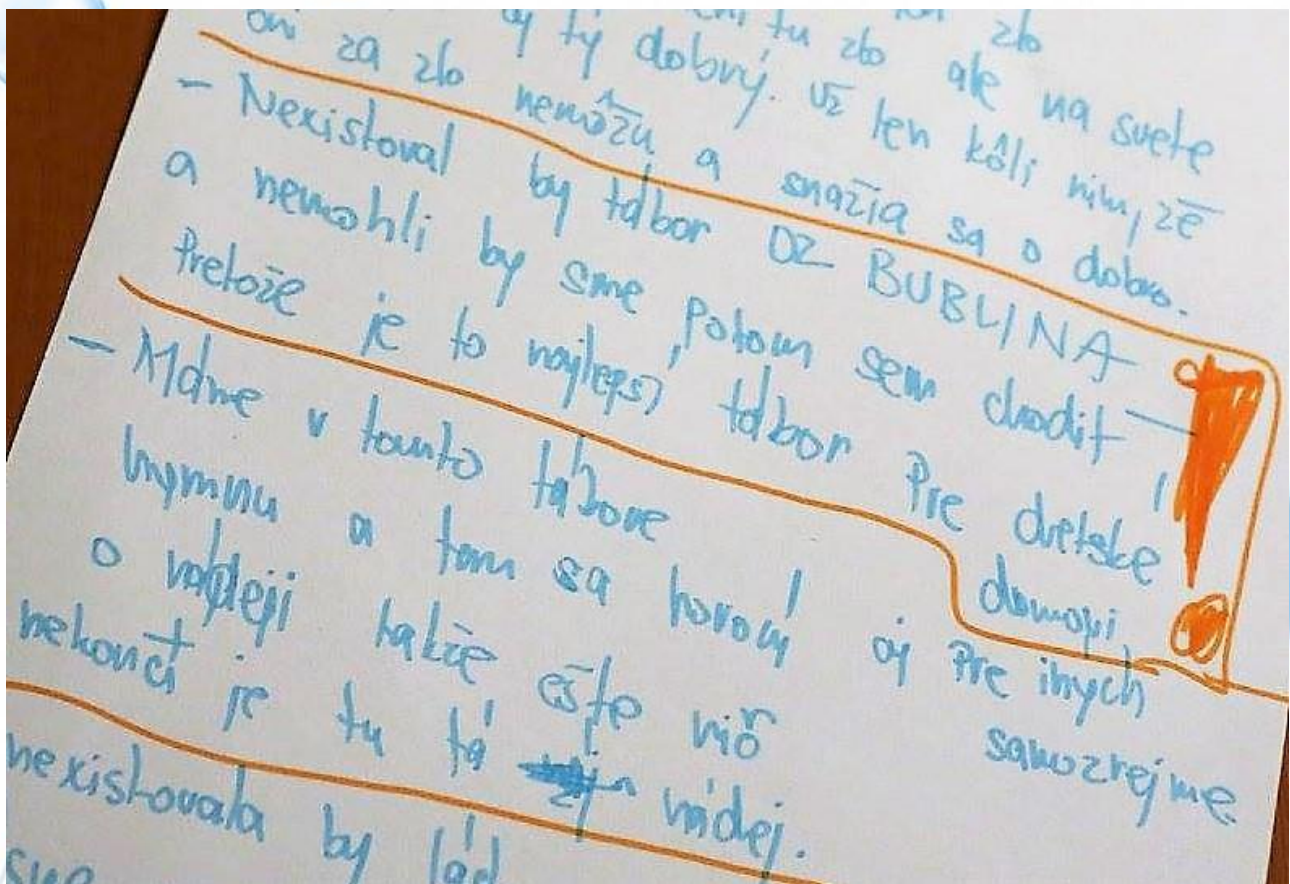 zlo
tu zlo ale na svete
aj tý dobrý. už len kôli nim, že
oni za zlo nemôžu a snažia sa o dobro.
- Nexistoval by tábor OZ BUBLINA
a nemohli by sme potom sem chodiť
Pretože je to najlepší tábor Pre detské
domovi,
aj Pre iných
samozrejme
- Máme v tomto tábore
hymnu a tam sa hovorí
o nádeji takže ešte nič
nekončí je tu tá nádej.
nexistovala by